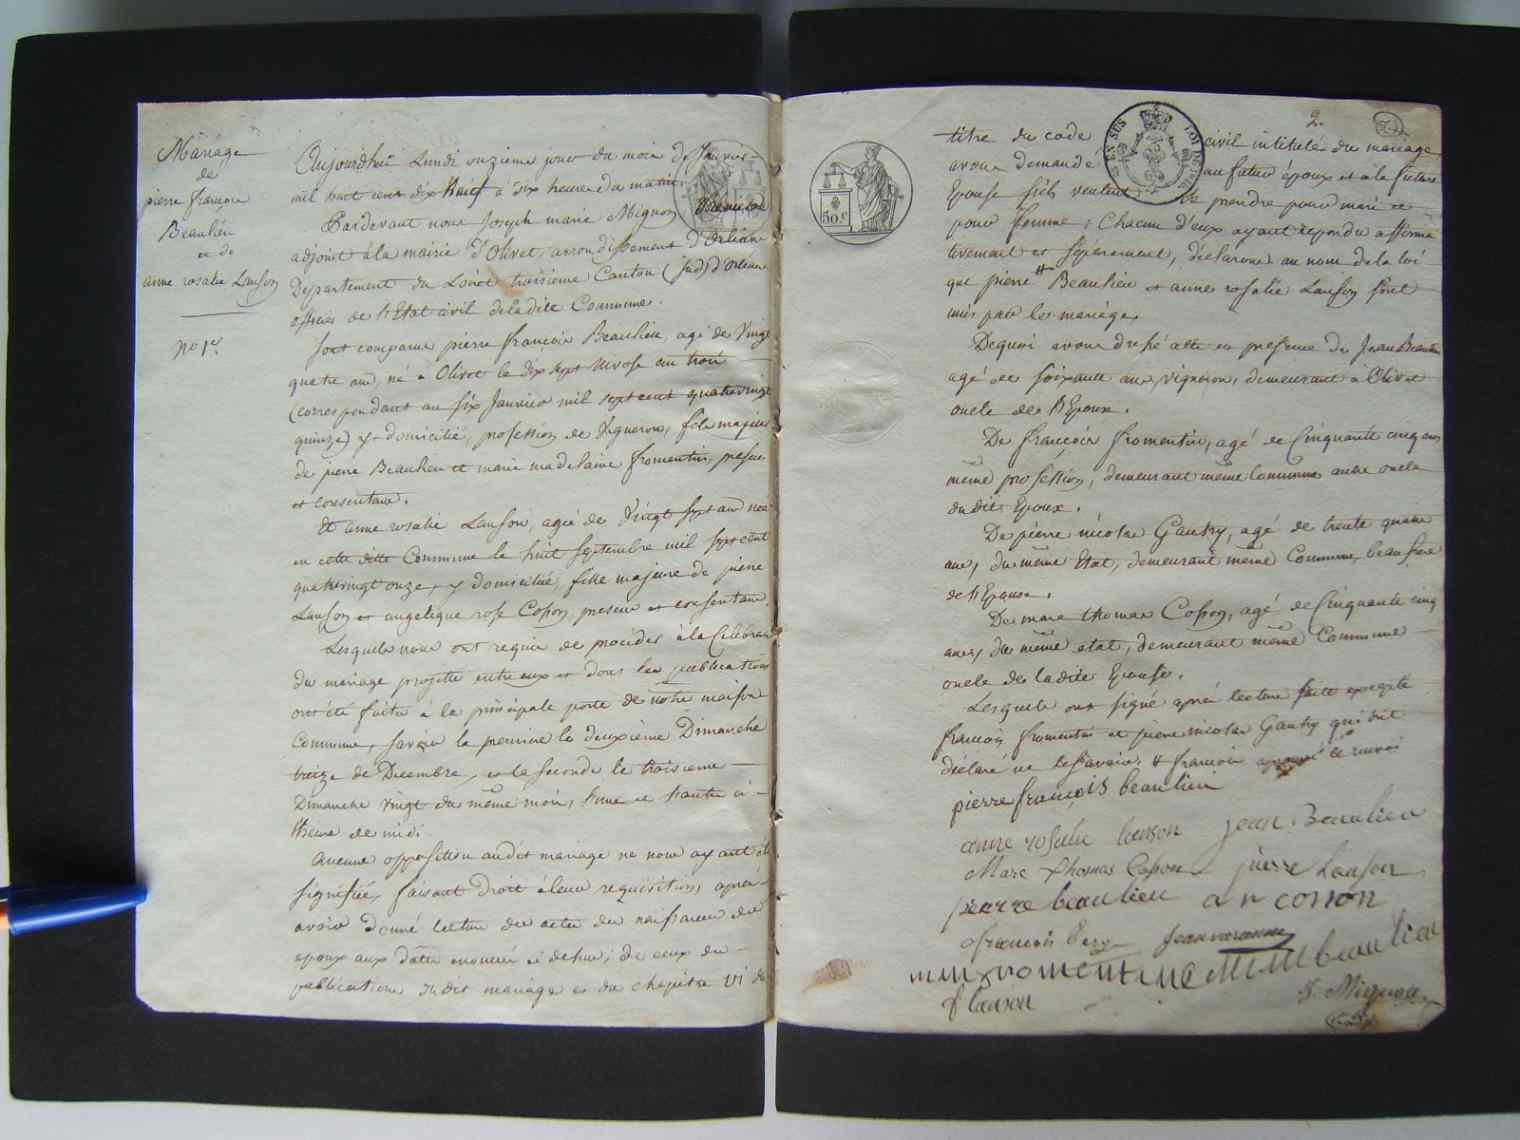 Mariage
de
pierre françois
Beaulieu
et de
anne rosalie Lanson
No 1er
Aujourdhui Lundi onzieme jour du mois de Janvier
mil huit cent dix Neuf a dix heures du matin
Pardevant nous Joseph marie Mignon
adjoint à la mairie d'Olivet, arrondissement d'Orléans
Departement du Loiret troisieme Canton (sud) d'orleans
officier de l'Etat civil de la dite Commune.
sont comparus pierre françois Beaulieu, agé de Vingt
quatre ans, né a Olivet le dix sept nivose an trois
(correspondant au six Janvier mil sept cent quatrevingt
quinze) y domicilié, profession de Vigneron, fils majeur
de pierre Beaulieu et marie madelaine fromentin, present
et consentans.
Et anne rosalie Lanson, agée de Vingt sept ans née
en cette ditte Commune le huit septembre mil sept cent
quatrevingt onze, y domiciliée, fille majeure de pierre
Lanson et angelique rose Cosson, present et consentans.
Lesquels nous ont requis de procéder à la Célébration
du mariage projetté entre eux et dont les publications
ont été faites à la principale porte de notre maison
Commune, savoir la premiere le deuxieme Dimanche
treize de Décembre, et la seconde le troisieme
Dimanche vingt du même mois, l'une et l'autre à
l'heure de midi.
Aucune opposition audit mariage ne nous ayant été
signifiée, faisant droit à leur requisition, après
avoir donné lecture des actes de naissances des
epoux aux dates enoncées ci dessus; de ceux de
publications dudit mariage et du chapitre VI du
2.
titre du code civil intitulé du mariage
avons demandé au futur époux et à la future
Epouse s'ils veulent se prendre pour mari et
pour femme; Chacun d'eux ayant répondu affirma
tivement et séparement, déclarons au nom de la loi
que pierre # Beaulieu et anne rosalie Lanson sont
unis par le mariage.
De quoi avons dressé acte en presence de Jean Beaulieu
agé de soixante ans, vigneron, demeurant à Olivet
oncle de l'Epoux.
De françois fromentin, agé de Cinquante cinq ans
même profession, demeurant même Commune autre oncle
dudit Epoux.
De pierre nicolas Gautry, agé de trente quatre
ans, du même Etat, demeurant même Commune, beau frere
de l'Epouse.
De marc thomas Cosson, agé de Cinquante cinq
ans, du même etat, demeurant même Commune
oncle de ladite Epouse.
Lesquels ont signé après lecture faite excepté
francois fromentin et pierre nicolas Gautry qui ont
déclaré ne le savoir. # francois approuvé le renvoi
pierre françois beaulieu
anne rosalie lanson Jean Beaulieu
Marc Thomas Cosson pierre Lanson
pierre beaulieu a r cosson
françois Jean varanne
beaulieu
f lanson J. Mignon
EN SUS
LOI DE
50 c